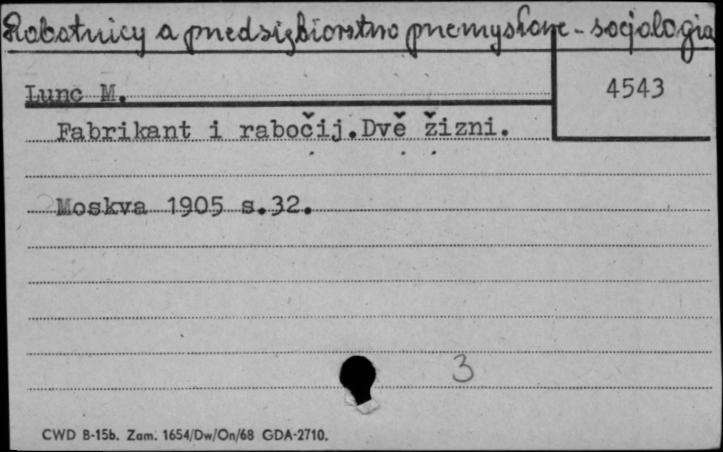 Robotnicy a przedsiębiorstwo przemysłowe - socjologia
4543
Lunc M.
Fabrikant i rabočij. Dvě žizni.
Moskva 1905 s.32.
3
CWD B-15b. Zam. 1654/Dw/On/68 GDA-2710.